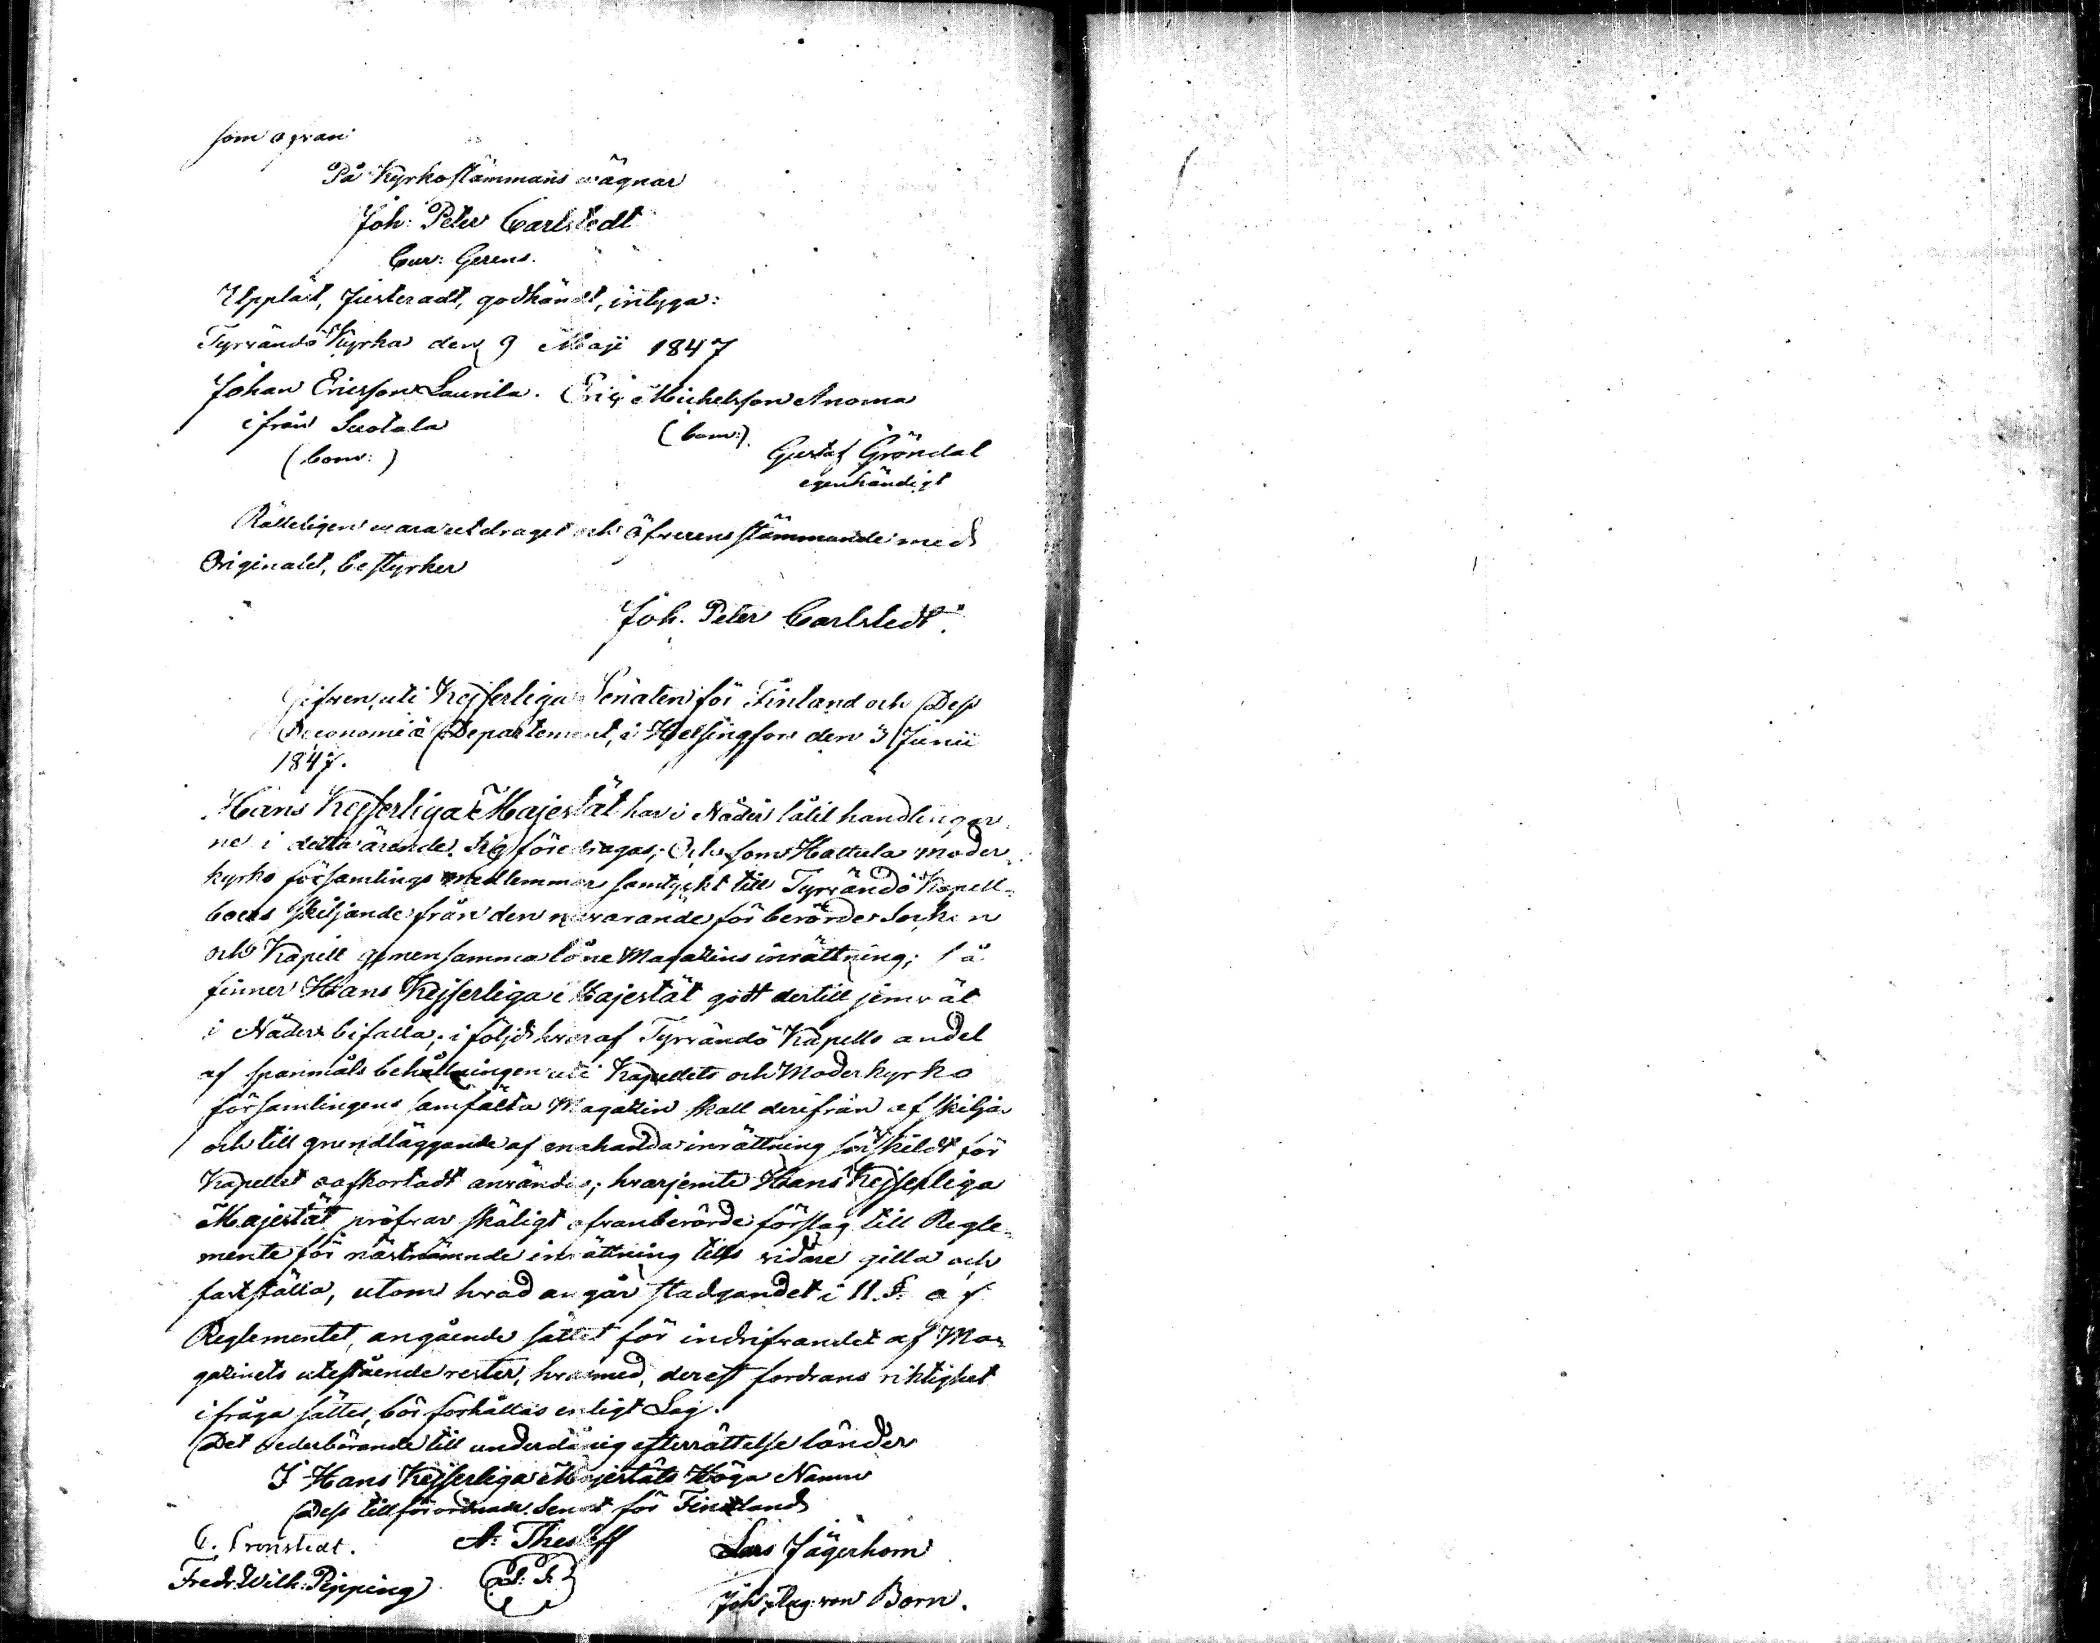 som ofvan
På Kyrkostämmans vägnar
Joh: Peter Carlstedt
Cur: Gerens.
Uppläst, Justeradt, godkändt, intyga:
Tyrvändö Kyrka den 9 Maji 1847
Johan Ericsson Laurila. Eric Michelsson Anoma
ifrån Suotala
(bom:).
(bom:)
Gustaf Gröndal
egenhändigt
Rätteligen vara utdraget och öfverensstämmande med
Originalet, bestyrker
Joh. Peter Carlstedt.
Gifven uti Kejserliga Senaten för Finland och Dess
Oeconomiæ Departement, i Helsingfors den 3 Junii
1847.
Hans Kejserliga Majestät har i Nåder låtit handlingar-
ne i detta ärende sig föredragas; Och som Hattula moder-
kyrko församlings medlemmar samtyckt till Tyrvändö Kapell-
boers skiljande från den nuvarande för berörde Socken
och Kapell gemensamma låne Magazins inrättning; så
finner Hans Kejserliga Majestät godt dertill jemväl
i Nåder bifalla; i följd hvaraf Tyrvändö Kapells andel
af spanmåls behållningen uti Kapellets och Moderkyrko
församlingens samfälta Magazin skall derifrån afskiljas
och till grundläggande af enahanda inrättning särskildt för
Kapellet oafkortadt användas; hvarjemte Hans Kejserliga
Majestät pröfvar skäligt ofvanberörde förslag till Regle-
mente för nästnämnde inrättning tills vidare gilla och
fastställa, utom hvad angår stadgandet i 11. §. af
Reglementet, angående sättet för indrifvandet af Ma-
gazinets utestående rester, hvarmed, derest fordrans riktighet
ifråga sättes, bör förhållas enligt Lag.
Det vederbörande till underdånig efterrättelse länder
I Hans Kejserliga Majestäts Höga Namn
Dess tillförordnade Senat för Finland
C. Cronstedt. A. Thesleff Lars Jägerhorn
Fredr. Wilh. Pipping (L. S.) Joh. Aug. von Born.